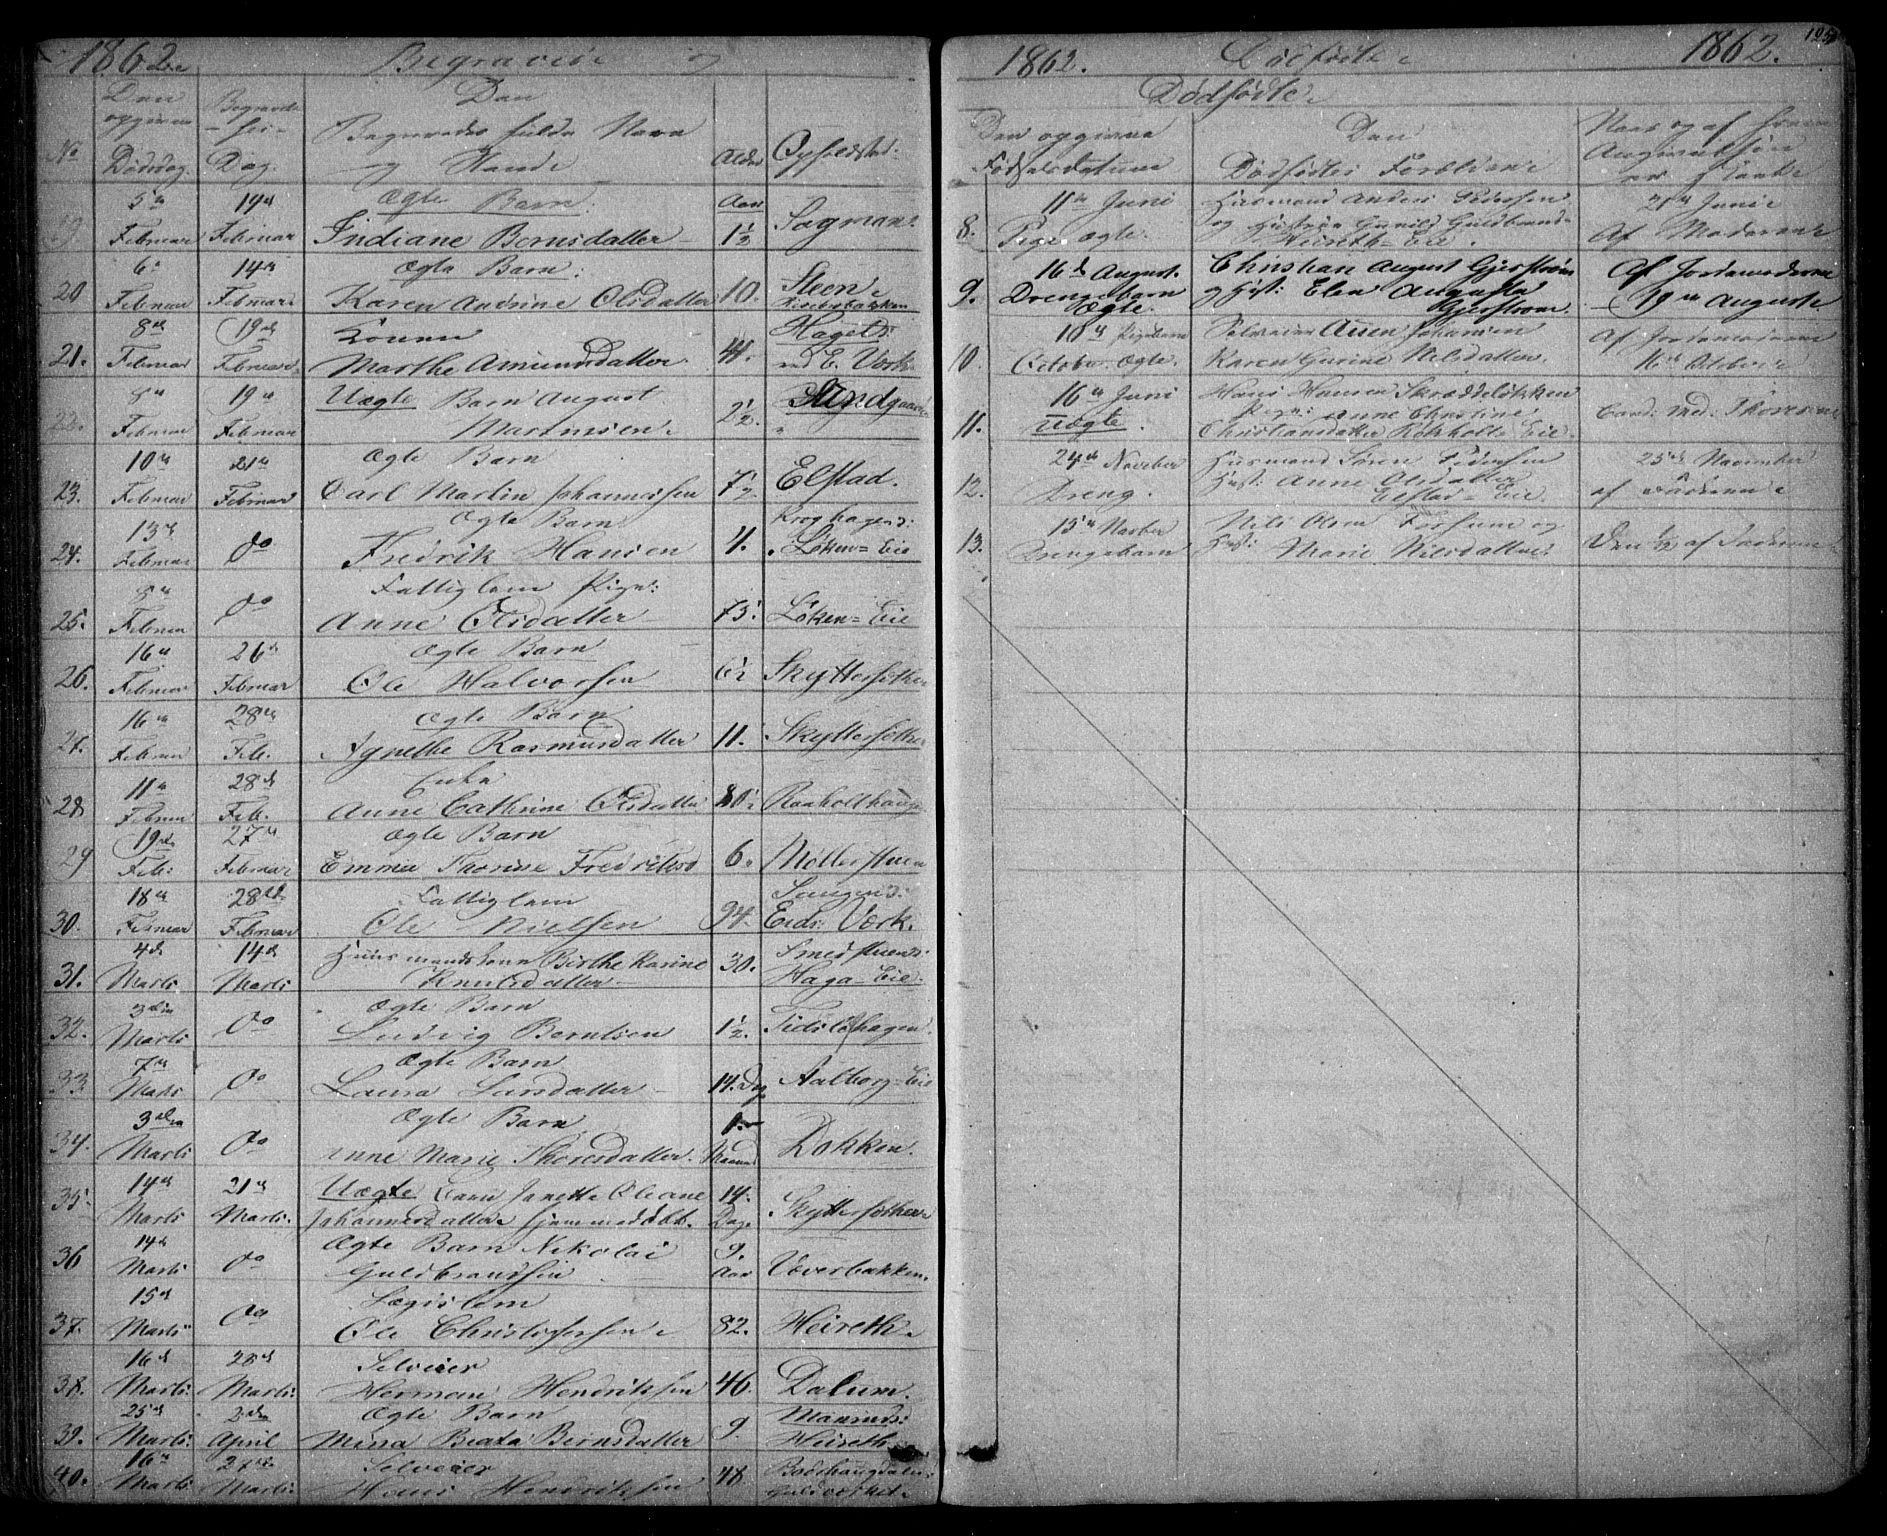 1862 Begravede og
No
Den opgivne Dødsdag
Begravelses Dag
Den Begravedes fulde Navn og Stand
Alder
Opholdsted
19 5te Februar 19de Februar Ægte Barn Indiane Berntsdatter Aar 1½ Sagman:
20 6te Februar 14de Februar Ægte Barn: Karen Andrine Olsdatter 10. Steen
21. 8de Februar 19de Februar Konen Marthe Amundsdatter 41. Haget: ved E. Værk
22. 8de Februar 19de Februar Uægte Barn August Martinsen 2½
23. 10de Februar 21de Februar Ægte Barn Carl Martin Johannessen 7½ Elstad.
24. 13de Februar do Ægte Barn Fredrik Hansen 4. Kroghagen: Løken=Eie
25. 8de Februar do Fattiglem Pige: Anne Olsdatter 75. Løken=Eie
26. 16de Februar 26de Februar Ægte Barn Ole Halvorsen 6½ Skyttesæther
27. 16de Februar 28de Feb. Ægte Barn Agnethe Rasmusdatter 11. Skyttesæther
28 11te Februar 28de Feb. Enke Anne Cathrine Olsdatter 80½ Raaholthauge
29 19de Feb: 27de Februar Ægte Barn Emma Thorine Fredriksd 6. Møllerstuen
30. 18de Februar 28de Februar Fattiglem Ole Nielsen 94. Eids: Værk.
31. 4de Marts 14de Marts Huusmandskone Birthe Karine Knutsdatter 30. Smedstuen: Haga=Eie
32. 3die Marts do Ægte Barn Ludvig Berntsen 1½. Tidsløhagen.
33 7de Marts do Ægte Barn Laura Larsdatter 14. Dg Aalborg=Eie
34. 3die Marts do Ægte Barn Anne Marie Thoresdatter. 1 Maaned Dokken.
35. 14de Marts 21de Marts. Uægte Barn Janette Oleane Johannesdatter hjemmedøbt. 14. Dage Skyttesæther
36 14de Marts do Ægte Barn Nikolai Guldbrandsen 9. Aar Væverbakken.
37. 15de Marts do Lægdslem Ole Christophersen 82. Heireth
38. 16de Marts: 28de Marts: Selveier Herman Hendriksen 46. Dalum.
39. 25de Marts: 2den April Ægte Barn Mina Beata Berntsdatter 9 Heireth
40. 16de Marts 27de Marts: Selveier Hans Hendriksen 48 Guldværket
1862. Dødfødte 1862.
Dødfødte
Den opgivne Fødselsdatum
Den Dødfødtes Forældre
Naar og af hvem Angivelsen er skeet
8. 11te Juni Pige ægte. Husmand Anders Pedersen og Hustrue Gunild Guldbrandsd Heireth=Eie. 21de Juni Af Moderen
9. 16de August. Drengebarn Ægte. Christian August Gjerstrøm og Hst: Elen Augusta Gjerstrøm. Af Jordemoderen 19de August
10. 10de Pigebarn October Ægte. Selveier Auen Johansen Karen Gurine Nilsdatter. Af Jordemoderen 16de October
11. 16de Juni Uægte. Hans Hansen Skræddeløkken Pige: Anne Christine Christiansdatter Eie. Cand: Med:
12. 24de November Dreng. Husmand Søren Pedersen Hst: Anne Olsdatter Elstad=Eie. 25de November af Faderen
13. 15de Drengebarn Nils Olsen og Hst: Marie Nilsdatter Den af Faderen